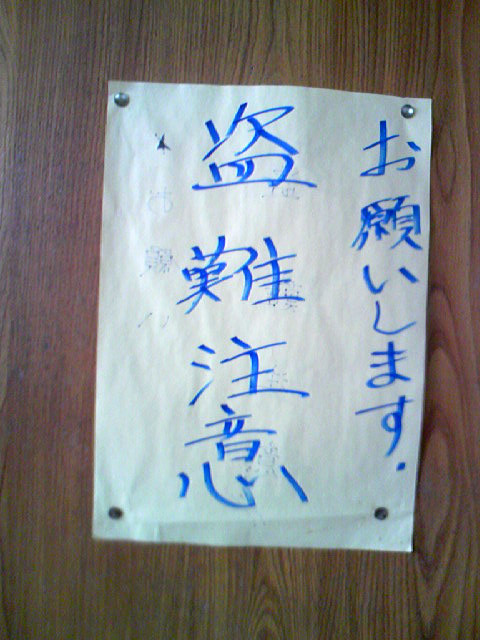 お願いします.
盗難注意